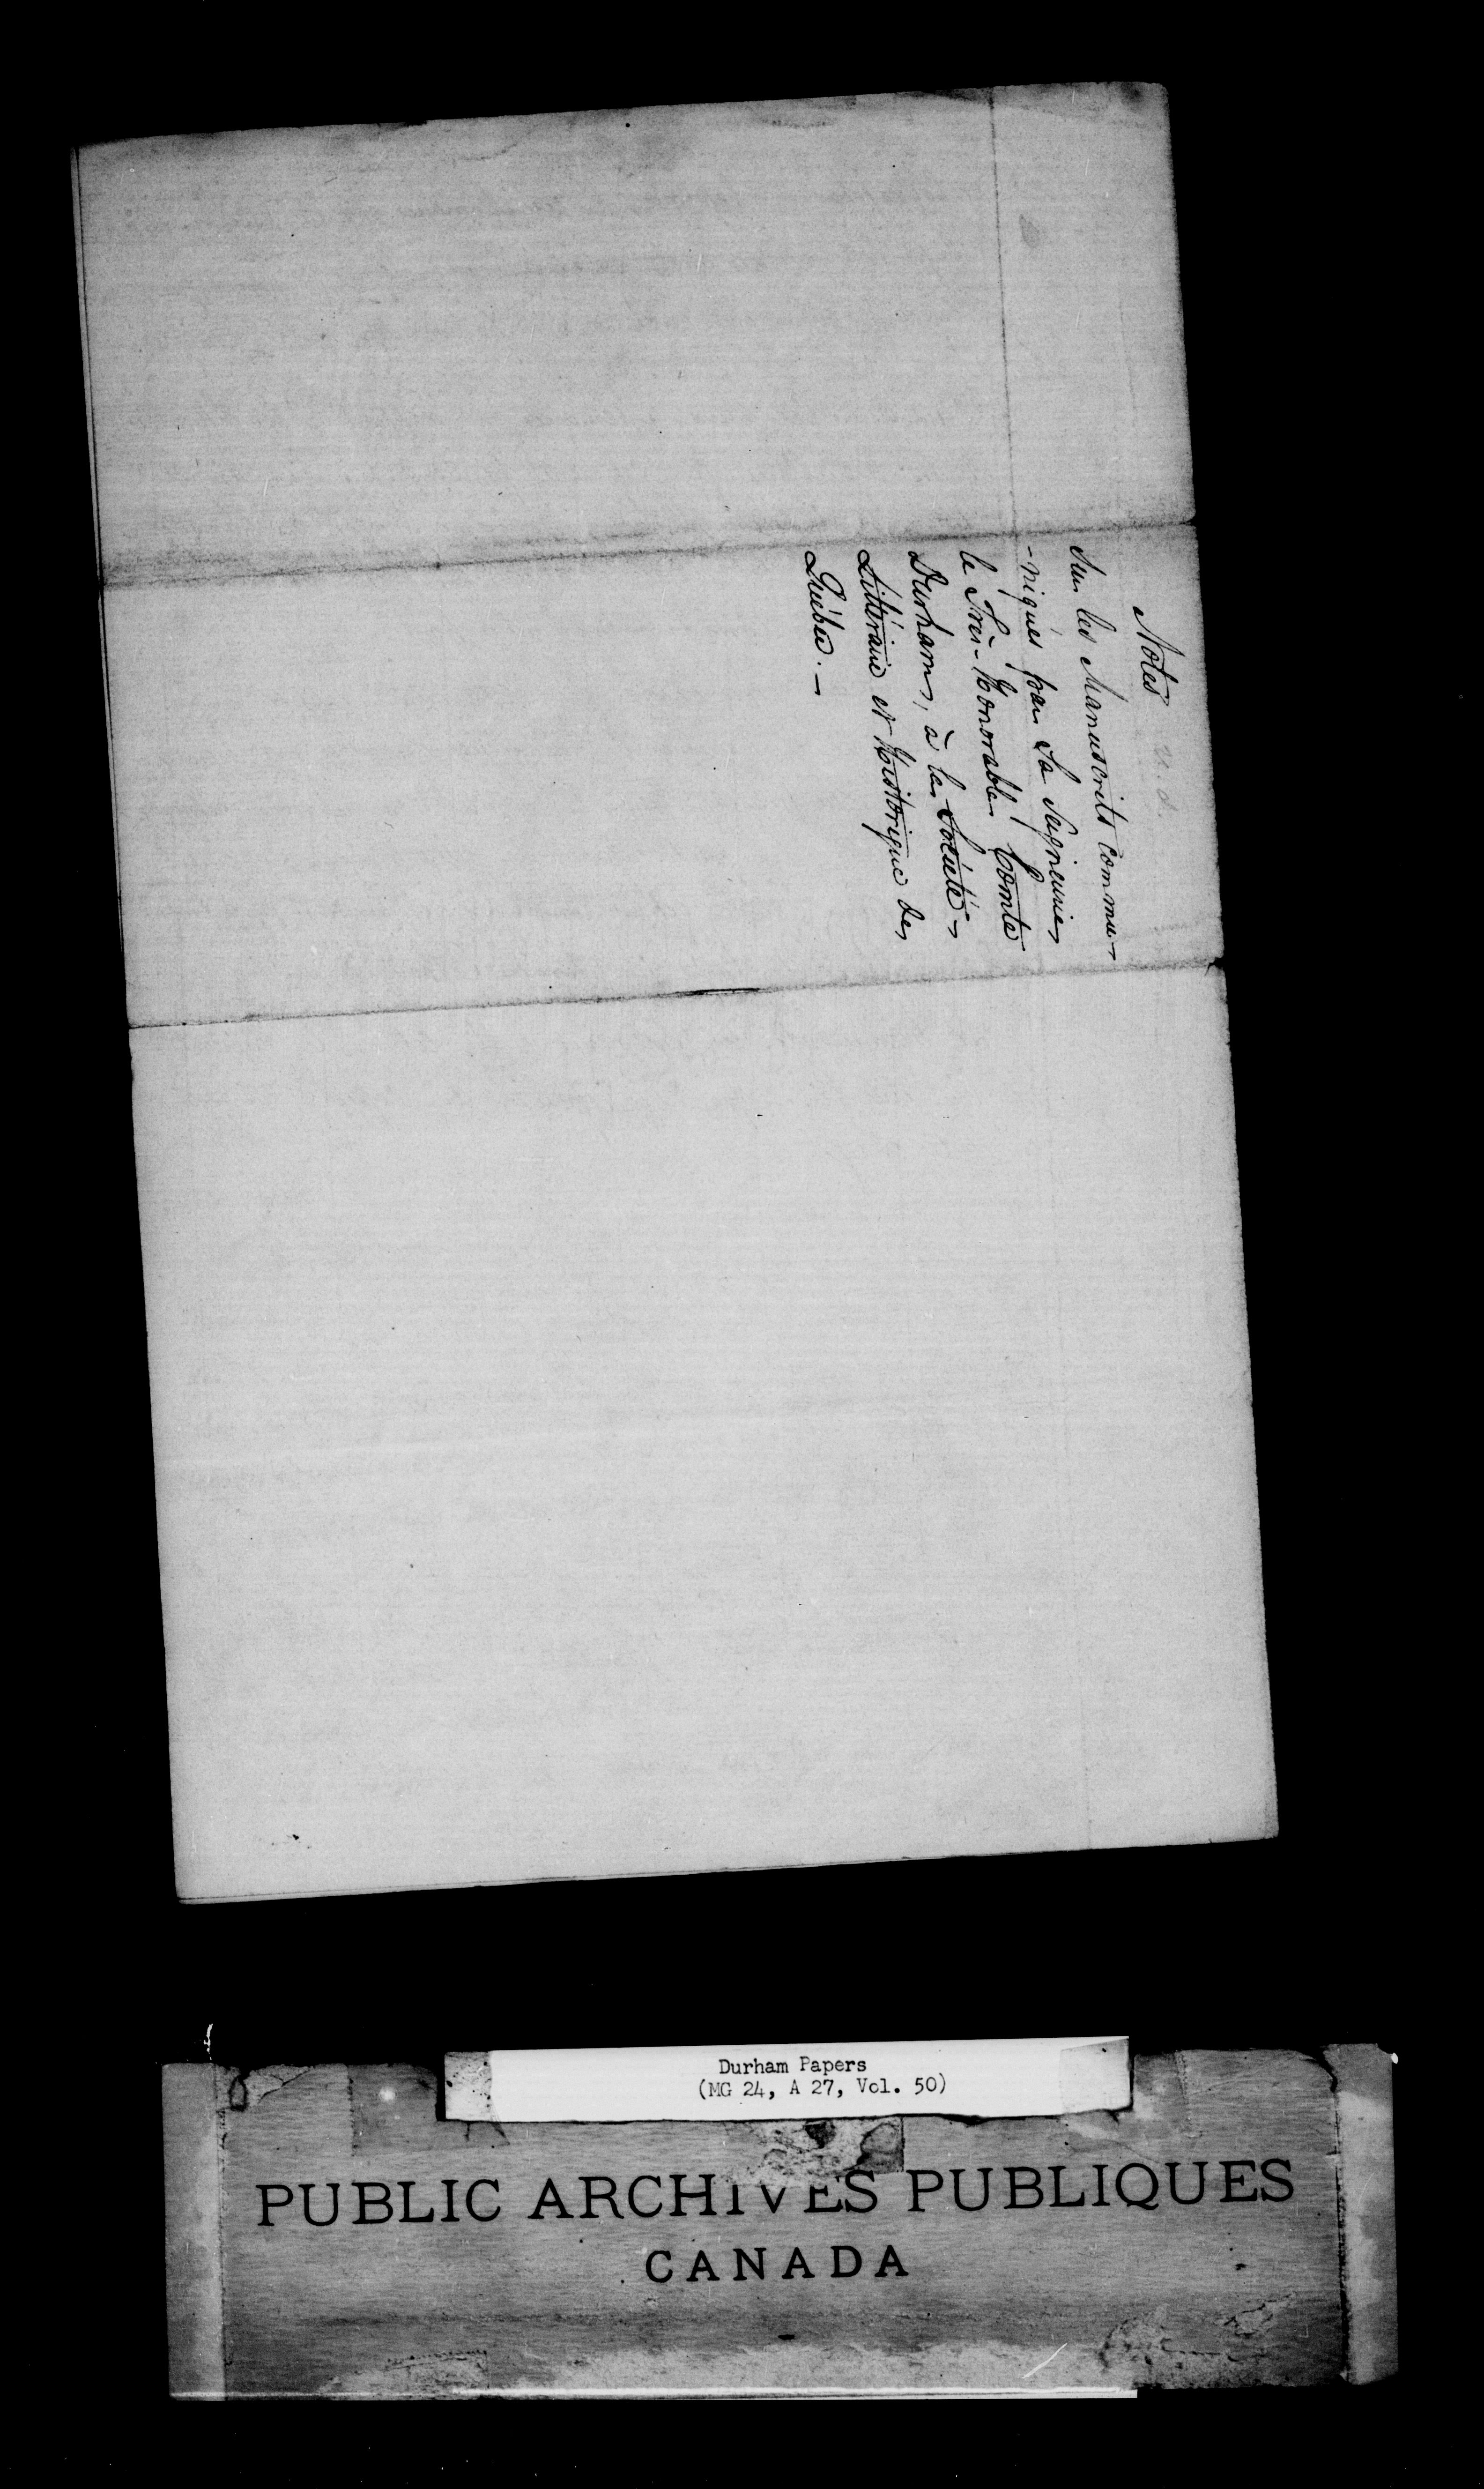 Notes
n. d.
Sur les Manuscrits commu-
-niqués par Sa Seigneurie
le Très-Honorable Comte
Durham, à la Société
Littéraire et Historique de
Québec. -
Durham Papers
(MG 24, A 27, Vol. 50)
PUBLIC ARCHIVES PUBLIQUES
CANADA